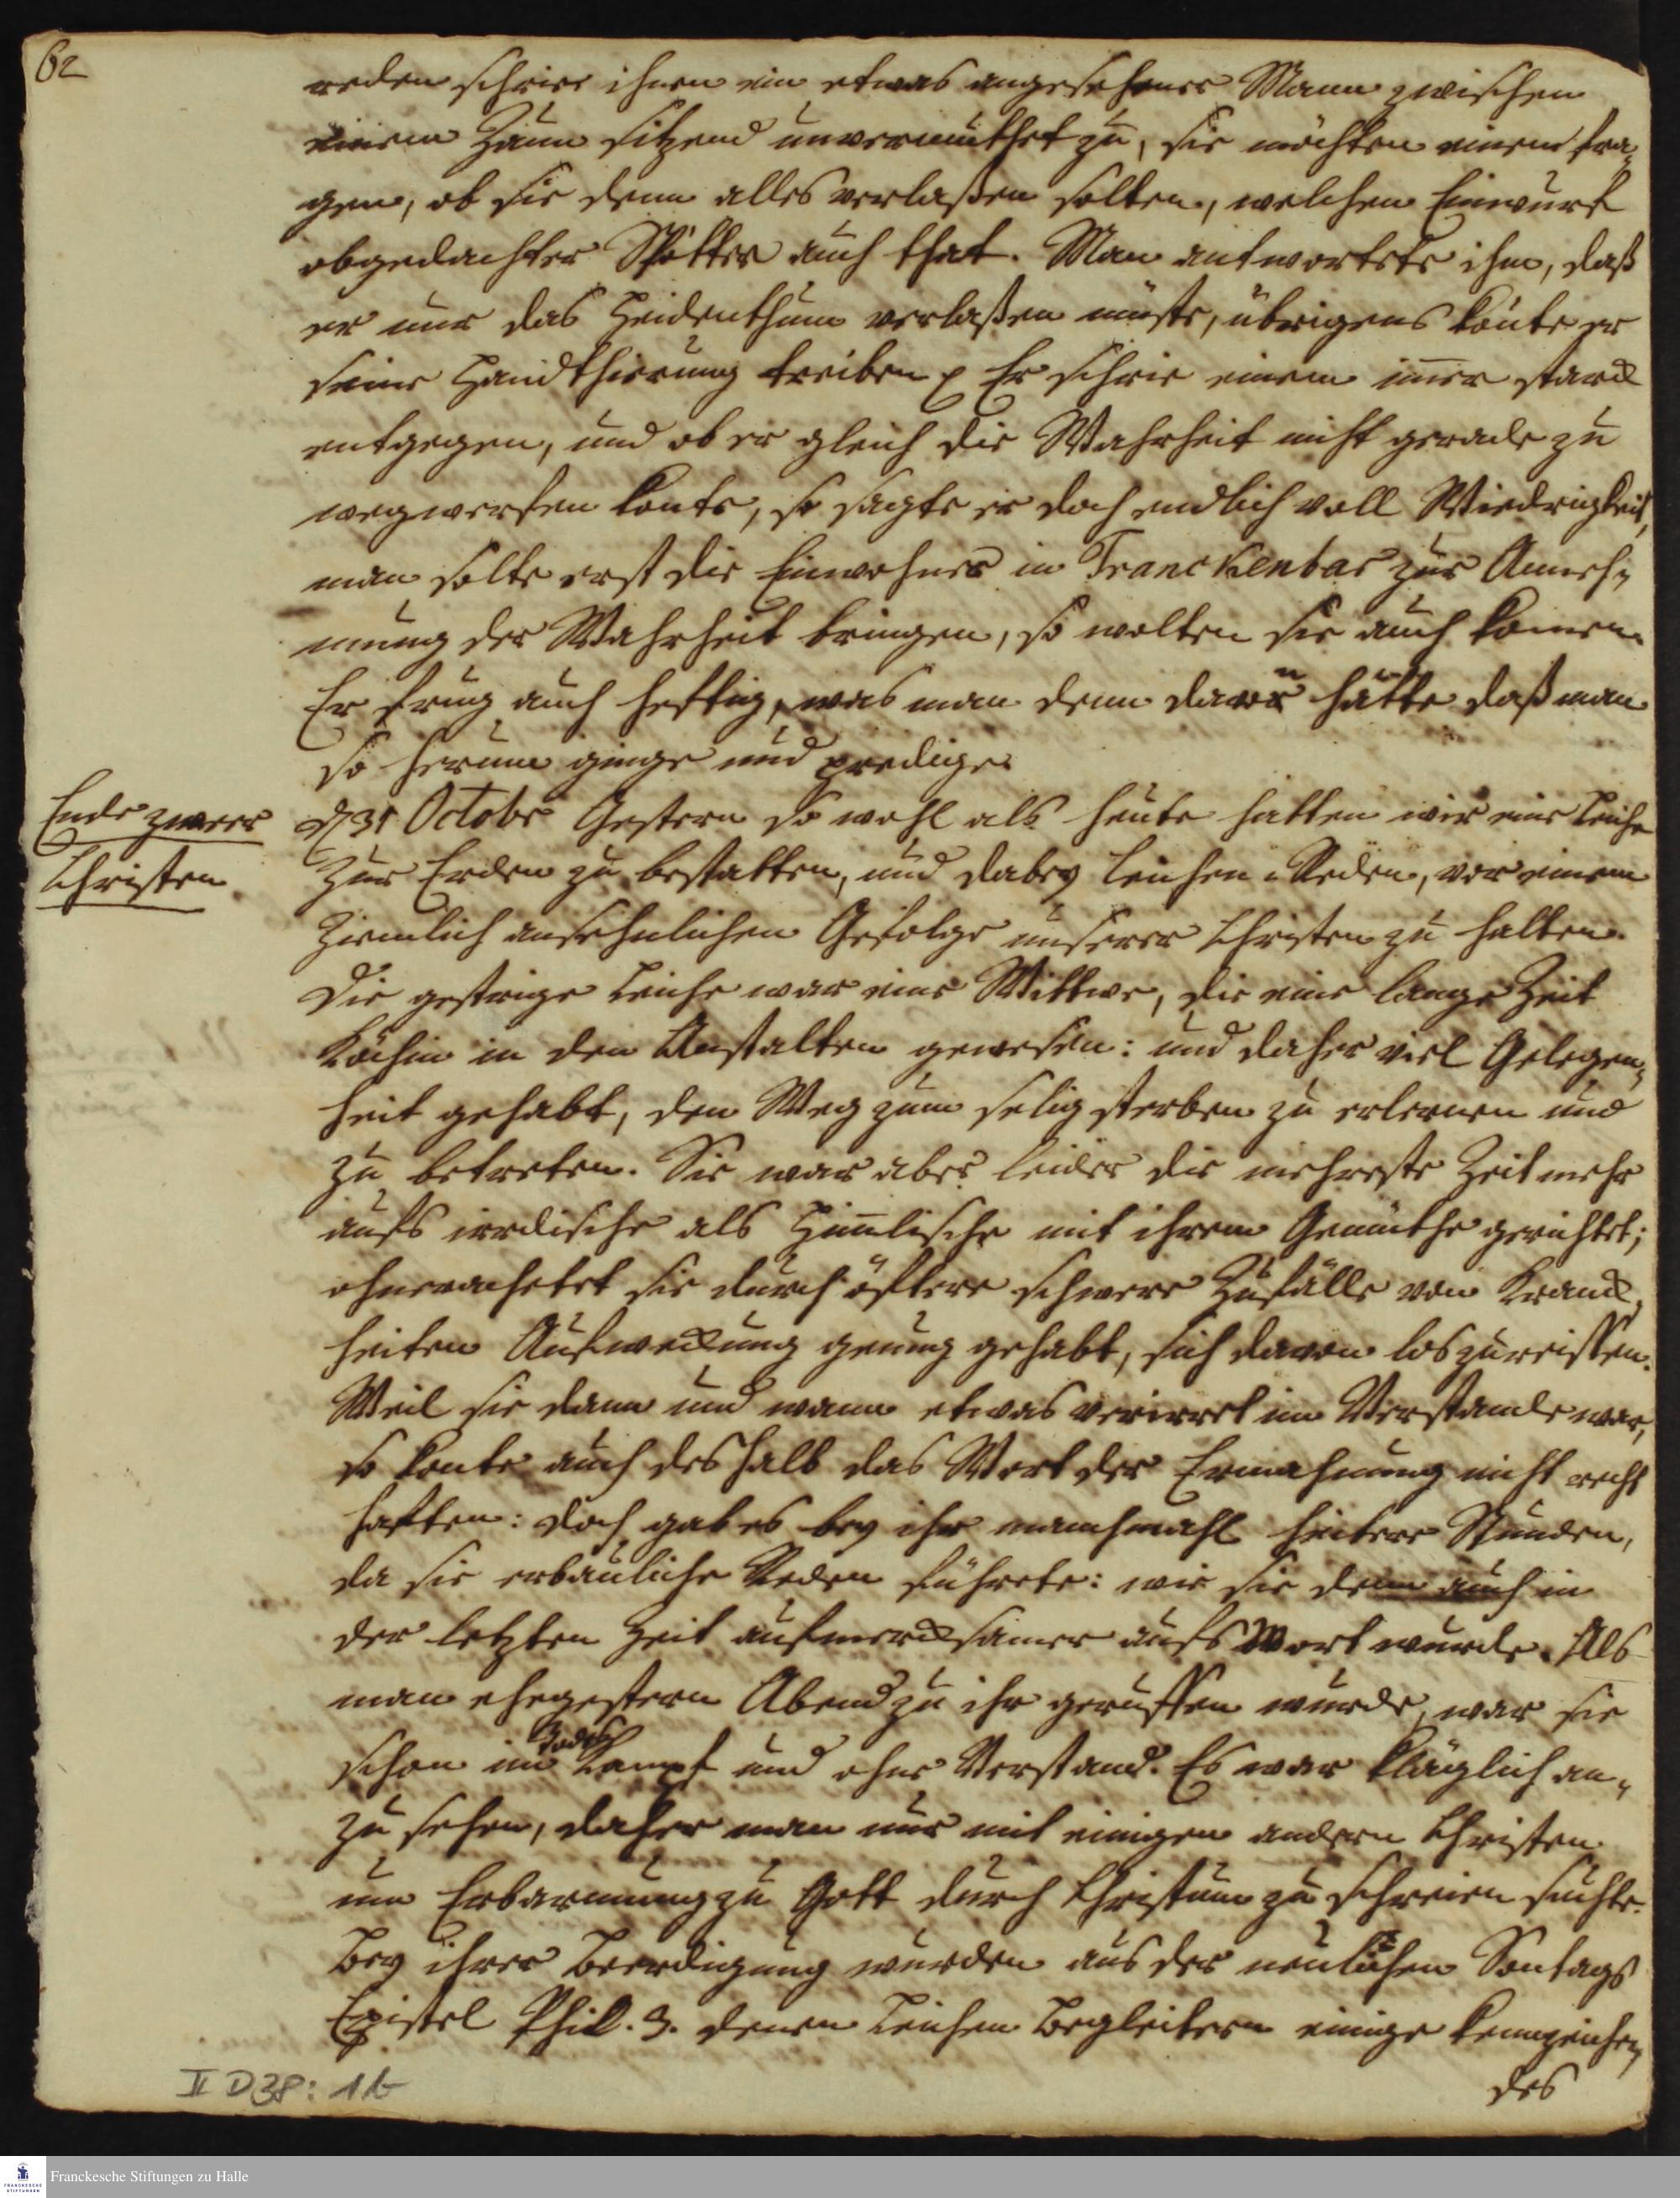 62
reden schrie ihnen ein etwas angesehener Mann zwischen
einem Zaun sitzend unvermuthet zu, sie möchten einem sa¬
gen, ob sie denn alles verlaßen solten, welchen Einwurf
obgedachter Spötter auch that. Man antwortete ihm, daß
er nur das Heidenthum verlaßen müste, übrigens könte er
seine Handthierung treiben p Er schrie einem im̄er starck
entgegen, und ob er gleich die Wahrheit nicht gerade zu
wegwerfen konte, so sagte er doch endlich voll Wiedrigkeit,
man solte erst die Einwohner in Tranckenbar zur Anneh¬
mung der Wahrheit bringen, so wolten sie auch kom̄en.
Er frug auch heftig, was man denn davon hätte daß man
so herum ginge und predige.
Ende zweer
Christen
d 31 Octobr Gestern so wohl als heute hatten wir eine Leiche
zur Erden zu bestatten, und dabey Leichen-Reden, vor einem
ziemlich ansehnlichen Gefolge unserer Christen zu halten.
Die gestrige Leiche war eine Wittwe, die eine lange Zeit
Köchin in den Anstalten gewesen: und daher viel Gelegen¬
heit gehabt, den Weg zum selig sterben zu erlernen und
zu betreten. Sie war aber leider die mehreste Zeit mehr
aufs irrdische als Him̄lische mit ihrem Gemüthe gerichtet;
ohnerachtet sie durch öftere schwere Zufälle von Kranck¬
heiten Aufweckung genug gehabt, sich davon loszureissen.
Weil sie dann und wann etwas verirret im Verstande war,
so konte auch deshalb das Wort der Ermahnung nicht recht
haften: doch gab es bey ihr manchmahl heitere Stunden,
da sie erbauliche Reden führete: wie sie denn auch in
der letzten Zeit aufmercksamer aufs Wort wurde. Als
man ehegestern Abend zu ihr geruffen wurde, war sie
schon im Todes Kampf und ohne Verstand. Es war kläglich an¬
zu sehen, daher man nur mit einigen andern Christen
um Erbarmung zu Gott durch Christum zu schreien suchte.
Bey ihrer Beerdigung wurden aus der neulichen Sontags
Epistel Phil. 3. denen Leichen Begleitern einige Kennzeichen
des
II D38: 1b
Franckesche Stiftungen zu Halle